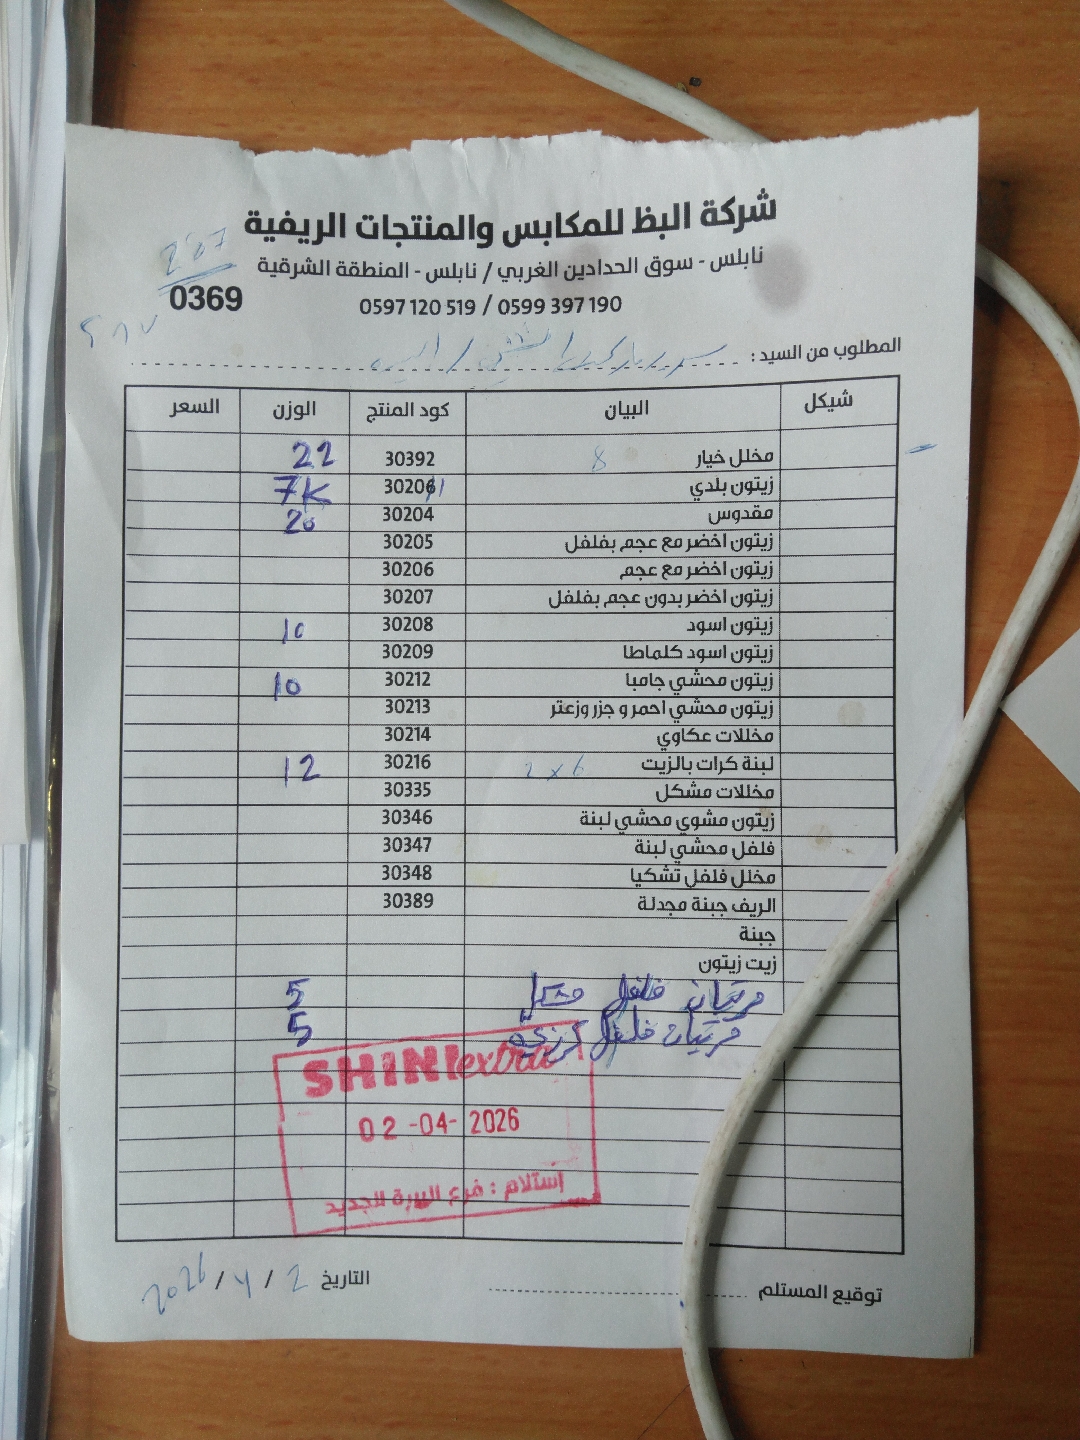 شركة البظ للمكابس والمنتجات الريفية
نابلس - سوق الحدادين الغربي / نابلس - المنطقة الشرقية
0597 120 519 / 0599 397 190
0369
المطلوب من السيد :
شيكل البيان كود المنتج الوزن السعر
مخلل خيار 8 30392 22
زيتون بلدي 30206 7K
مقدوس 30204 20
زيتون اخضر مع عجم بفلفل 30205
زيتون اخضر مع عجم 30206
زيتون اخضر بدون عجم بفلفل 30207
زيتون اسود 30208 10
زيتون اسود كلماطا 30209
زيتون محشي جامبا 30212 10
زيتون محشي احمر و جزر وزعتر 30213
مخللات عكاوي 30214
لبنة كرات بالزيت 2 x 6 30216 12
مخللات مشكل 30335
زيتون مشوي محشي لبنة 30346
فلفل محشي لبنة 30347
مخلل فلفل تشكيا 30348
الريف جبنة مجدلة 30389
جبنة
زيت زيتون
مرتبان فلفل مشكل 5
مرتبان فلفل 5
SHINI extra
02 -04- 2026
استلام : فرع البيرة الجديد
التاريخ 2 / 4 / 2026
توقيع المستلم